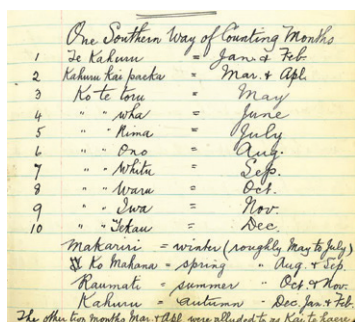 One Southern Way of Counting Months
1 Te Kahuru = Jan. & Feb.
2 Kahuru Kai paeka = Mar. & Apl.
3 Ko te toru = May
4 " " wha = June
5 " " Rima = July
6 " " Ono = Aug.
7 " " Whitu = Sep.
8 " " Waru = Oct.
9 " " Iwa = Nov.
10 " " Tekau = Dec.
Makariri = winter (roughly May to July)
Ko Mahana = spring " Aug. & Sep.
Raumati = summer " Oct. & Nov.
Kahuru = autumn - Dec. Jan. & Feb.
The other two months Mar. & Apl. were alluded to as Kai te haere